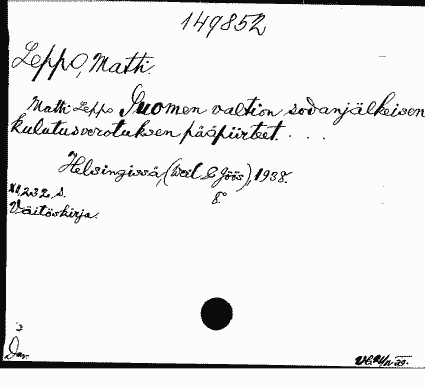 149852
Leppo, Matti.
Matti Leppo Suomen valtion sodanjälkeisen
kulutusverotuksen pääpiirteet. . . .
Helsingissä, (Weil & Göös), 1938.
8°
XI, 232 s.
Väitöskirja.